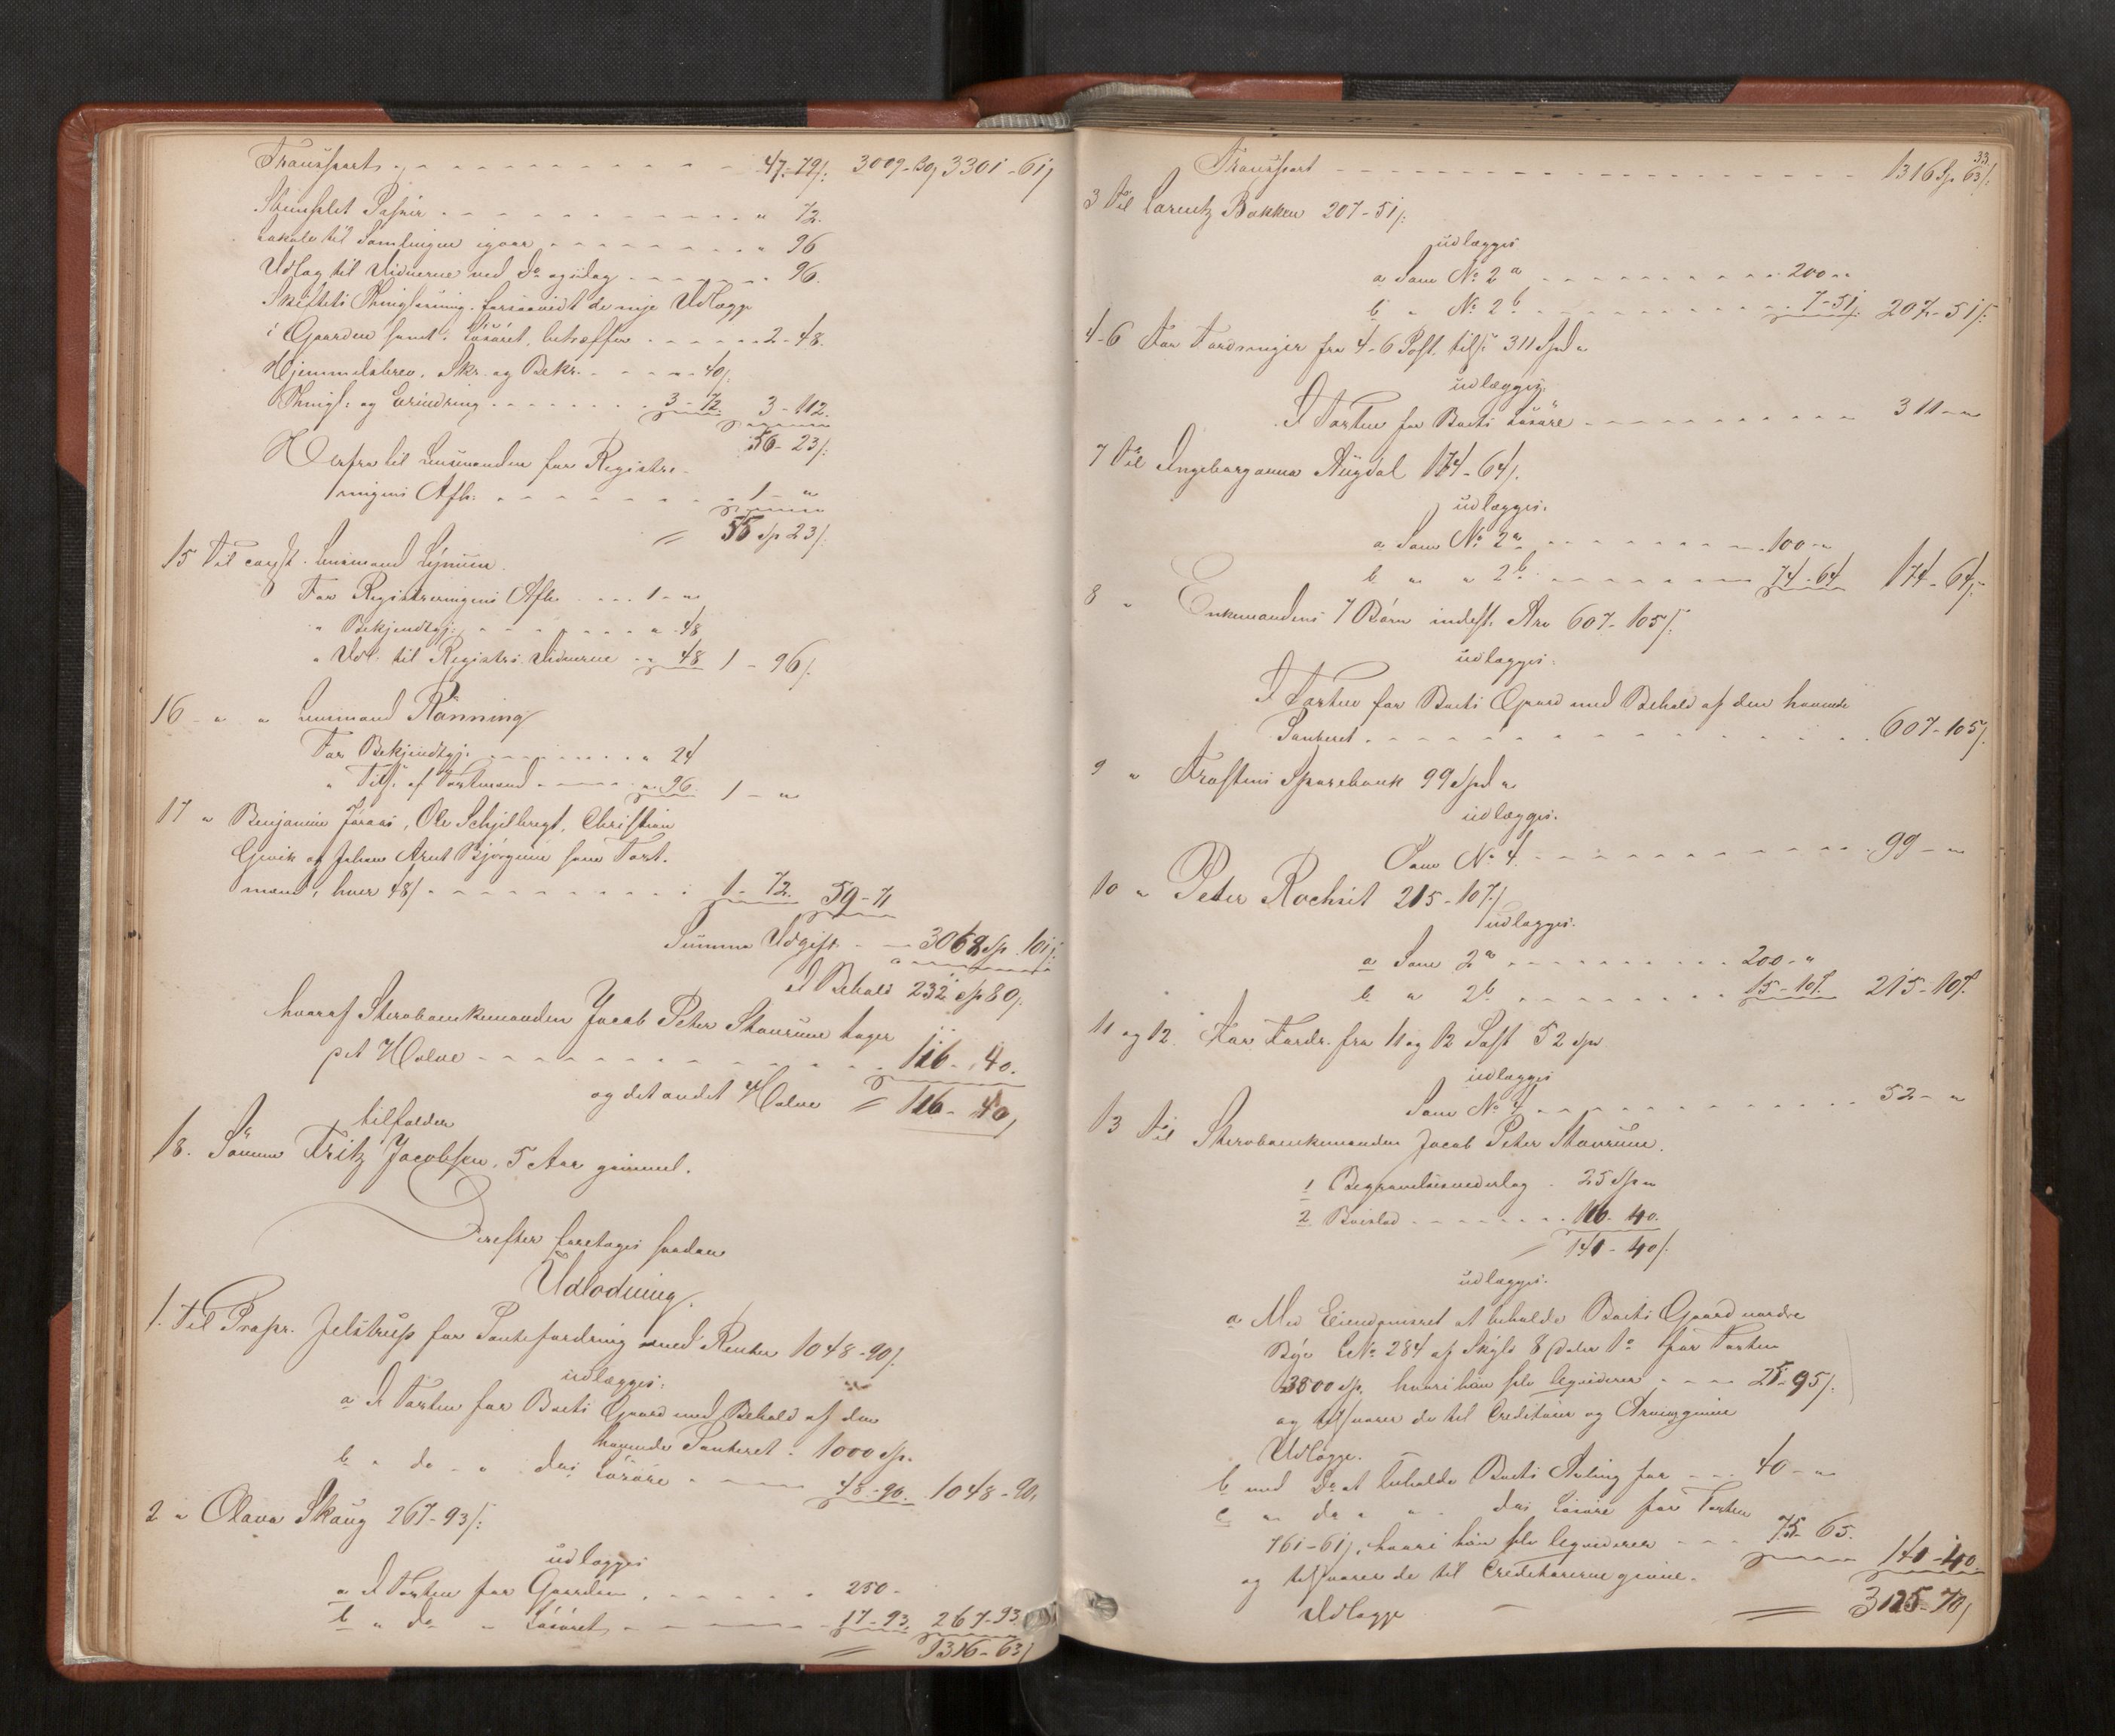 Transport - - - - 47-79/: 3009-30/ 3301-61/
Stemplet Papiir - - - - " 72.
Lokale til Samlingen igaar - - - - " 96
Udlæg til Vidnerne ved Do og idag - - - - 96.
Skiftets Thinglæsning forsaavidt de nye Udlægge
i Gaarden samt i Løsøret, betræffer - - - - 2-48.
Hjemmelsbrev, Skr. og Bekr. - - - - 40/:
Thingl: og Erindring - - - - 3-72. 3-112.
56-23/:
Herfra til Lensmanden for Registre-
ringens Afh: - - - - 1-"
= 55 Sp 23/:
15 Til const. Lensmand Lynum
For Registreringens Afh. - - - 1-"
" Bekjendtgj: - - - - " 48
" Udl. til Registr. Vidnerne - " 48 1-96/:
16 " " Lensmand Rønning
For Bekjendtgj. - - - - " 24
" Tils. af Taxtmænd - - - - " 96. 1-"
17 " Benjamin Foraas, Ole Schjelbregt, Christian
Gjevik og Johan Arnt Bjørgum som Taxt-
mænd, hver 48/ - - - - 1-72. 59-71
Summa Udgift - - 3068 Sp. 101/:
I Behold 232 Sp 80/:
hvoraf Stervboenkemanden Jacob Peter Stavrum tager
det Halve - - - - 116-40.
og det andet Halve = 116-40/
tilfalder
18. Sønnen Fritz Jacobsen, 5 Aar gammel.
Derefter foretoges saadan
Udlodning.
1. Til Propr. Jelstrup for Pantefordring med Renter 1048-90/:
udlægges:
a I Taxten for Boets Gaard med Behold af den
havende Panteret - 1000 Sp.
b " do " dets Løsøre - - - - 48-90. 1048-90/
2 " Olava Skaug 267-93/:
udlægges
a I Taxten for Gaarden - - - - 250-
b " do " Løsøret - - - - 17-93. 267-93.
= 1316-63/
33.
Transport - - - - 1316 Sp 63/:
3 Til Lorentz Bakken 207-51/:
udlægges
a Som No 2 a - - - - 200-"
b " No 2 b - - - - 7-51/: 207-51/:
4-6 For Fordringer fra 4-6 Post, tils. 311 Spd "
udlægges
I Taxten for Boets Løsøre - - - - 311-"
7 Til Ingeborganna Augdal 174-64/:
udlægges.
a Som No 2 a - - - - 100-"
b " " 2 b - - - - 74-64 174-64/:
8 " Enkemandens 7 Børn indest. Arv 607-105/:
udlægges:
I Taxten for Boets Gaard med Behold af den havende
Panteret - - - - 607-105/:
9 " Frostens Sparebank 99 Spd "
udlægges.
Som No 4 - - - - 99-"
10 " Peter Rochsét 215-107/:
udlægges.
a Som 2 a - - - - 200-"
b " 2 b - - - - 15-107. 215-107.
11 og 12 For Fordr. fra 11 og 12 Post 52 Spd
udlægges
Som No 4 - - - - 52-"
13 Til Stervboenkemanden Jacob Peter Stavrum.
1 Begravelsesvederlag - 25 Sp "
2 Boeslod - - - - 116-40.
= 141-40/:
udlægges.
a Med Eiendomsret at beholde Boets Gaard nordre
Bye LNo 284 af Skyld 8 Daler 1o for Taxten
3500 Sp. hvori han selv leqviderer - - - 25-95/:
og tilsvarer de til Creditorer og Arvinger givne
Udlægge.
b med Do at beholde Boets Avling for - - - 40-"
c " do " " dets Løsøre for Taxten
761-61/, hvori han selv leqviderer - - - 75-65. 141-40
og tilsvarer de til Creditorerne givne
Udlægge = 3125-70/